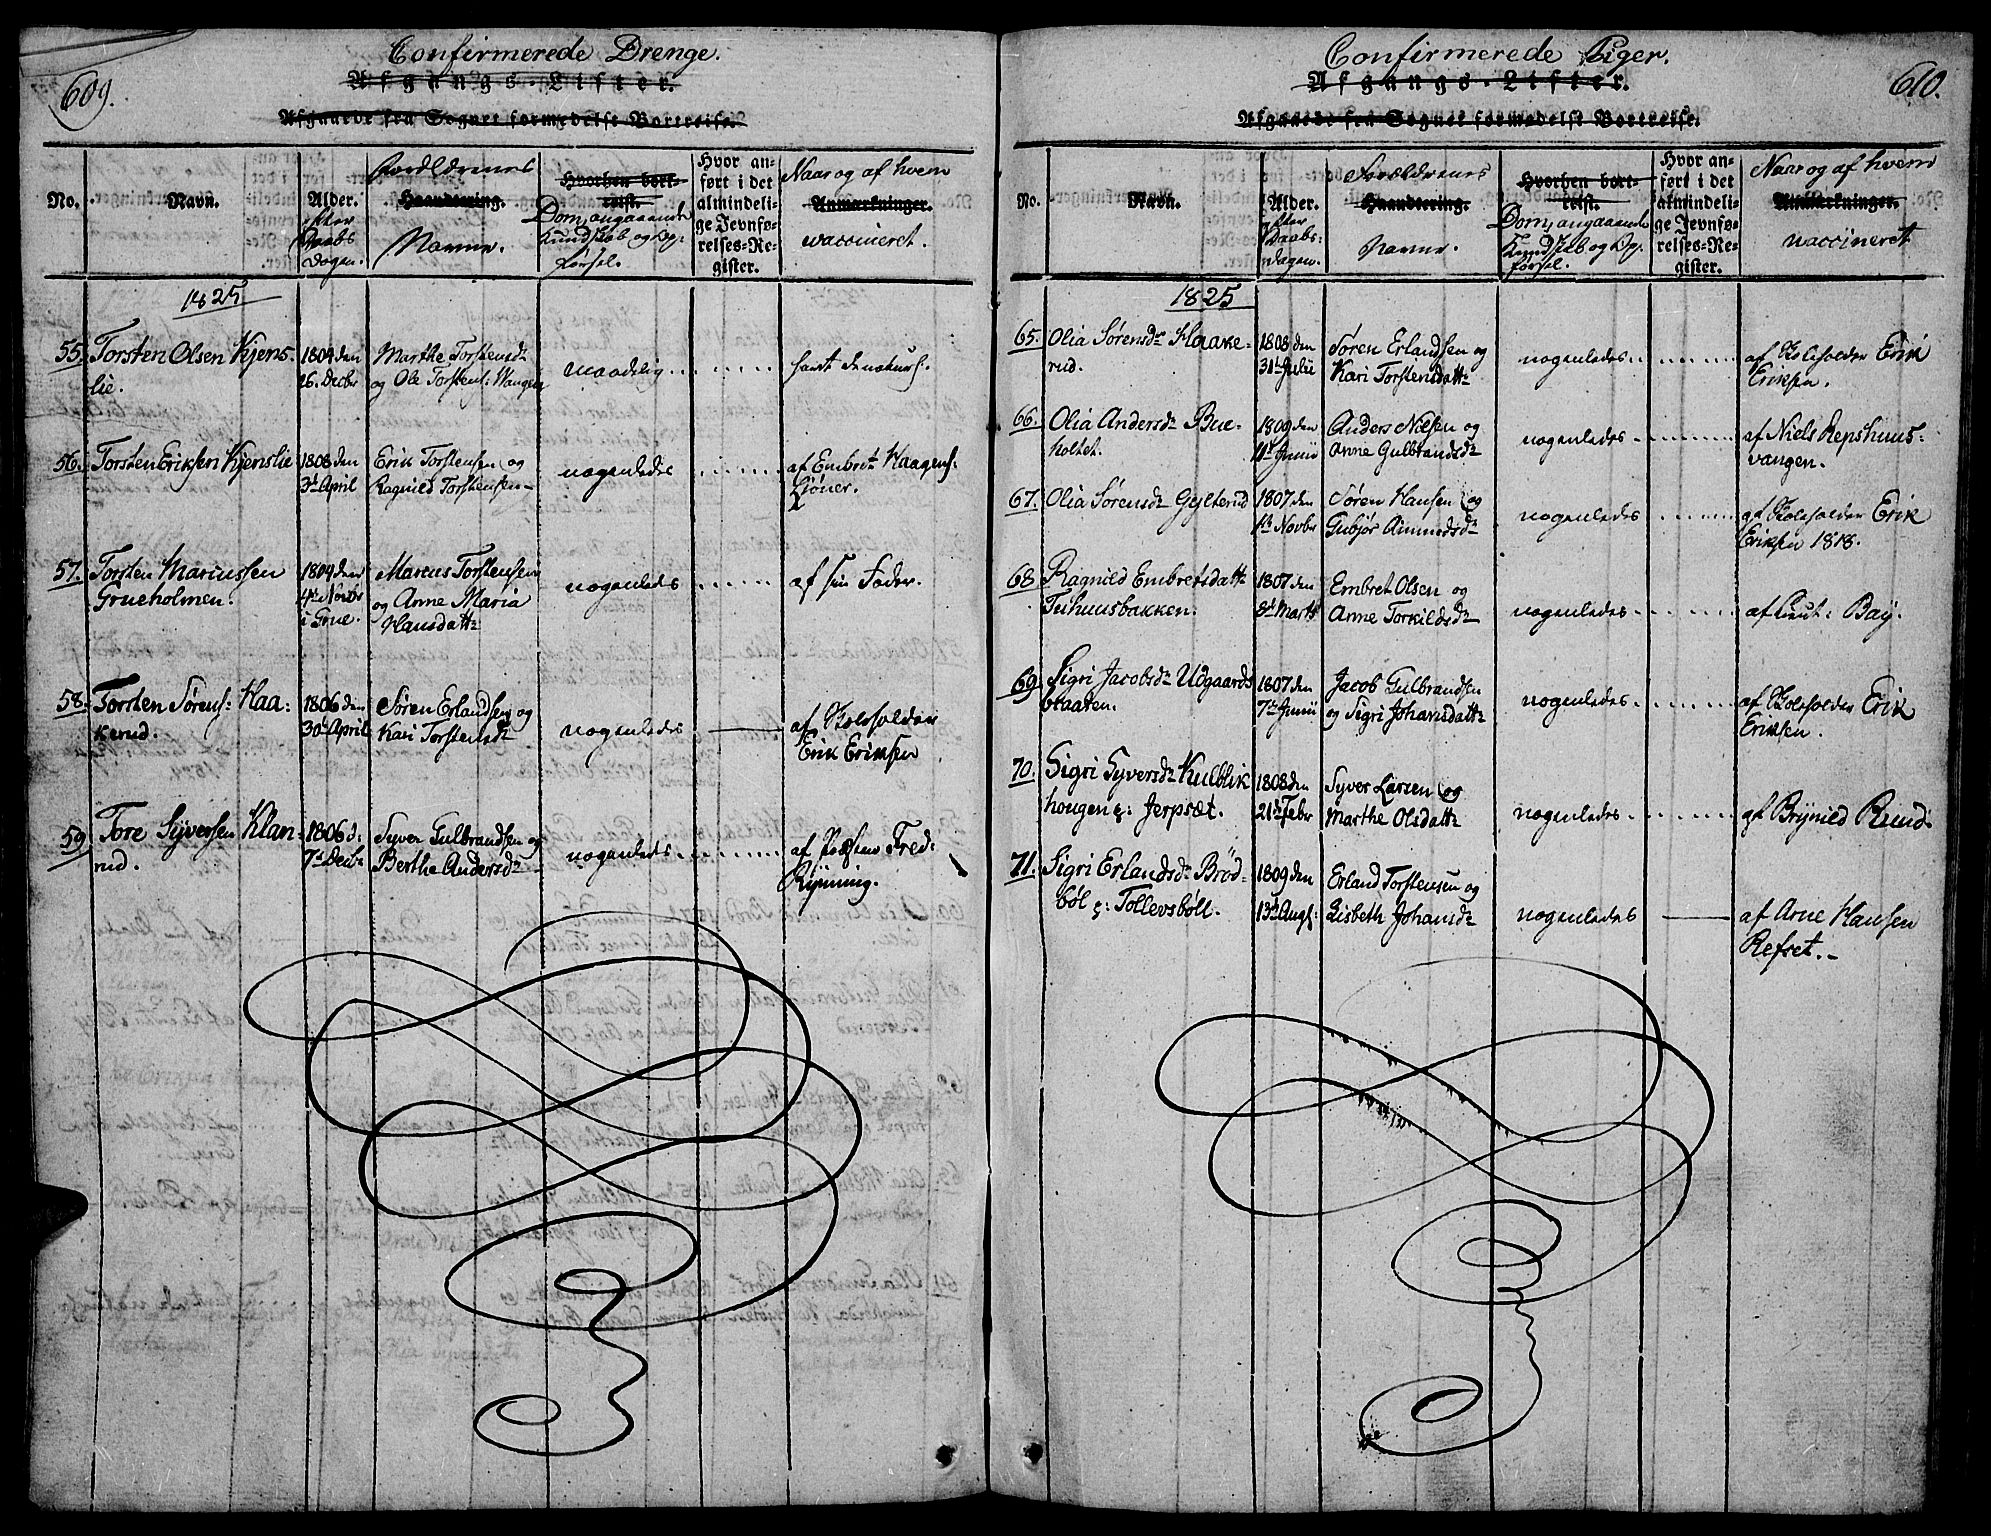 609.
Confirmerede Drenge.
Afgangs-Lister.
Afgaaede fra Sognet formedelst Bortreise.
No.
Navn.
Alder.
efter
Daabs
Dagen.
Forældrenes
Haandtering.
Navne.
Hvorhen bort-
reist.
Dom, angaaende
Kundskab og Op:
førsel.
Hvor an-
ført i det
almindeli-
ge Jevnfø-
relses-Re-
gister.
Naar og af hvem
Anmærkninger.
vaccineret.
1825
55. Torsten Olsen Kjens-
lie.
1804 den
26. Decbr
Marthe Torstensdr
og Ole Torstens: Wangen
maadelig
havt de naturl.
56. Torsten Eriksen Kjenslie
1808 den
3d April
Erik Torstensen og
Ragnild Torstensen
nogenledes
af Embret Haagens:
Liøner.
57. Torsten Mariussen
Grueholmen.
1809 den
4de Novbr
i Grue.
Marius Torstensen
og Anne Maria
Hansdattr
nogenledes
af sin Fader.
58. Torsten Sørens: Haa-
kerud.
1806 den
30d April
Søren Erlandsen og
Kari Torstensdr
nogenledes
af Kolefolden
Erik Eriksen
59 Tore Syversen Klan-
rud.
1806 d:
7d Decbr
Syver Gulbrandsen og
Berthe Andersdr
nogenledes
af Præsten Fred:
Rynning.
610.
Confirmerede Piger.
Afgangs-Lister.
Afgaaede fra Sognet formedelst Bortreise.
No.
Navn.
Alder.
efter
Daabs-
dagen.
Forældrenes
Haandtering.
Navne.
Hvorhen bort-
reist.
Dom, angaaende
Kundskab og Op:
førsel.
Hvor an-
ført i det
almindeli-
ge Jevnfø-
relses-Re-
gister.
Naar og af hvem
Anmærkninger.
vaccineret
1825
65. Olia Sørensdr Haake-
rud.
1808 den
31d Julii
Søren Erlandsen og
Kari Torstensdattr
nogenledes
af Kolefolden Erik
Eriksen.
66. Olia Andersdr Bue-
holtet.
1809 den
11d Junii
Anders Nilsen og
Anne Gulbrandsdr
nogenledes
af Niels Repshuus-
vangen.
67. Olia Sørensdr Gylterud
1807 den
1te Novbr
Søren Hansen og
Gubjør Ammundsdr
nogenledes
af Kolefolden Erik
Eriksen 1818.
68 Ragnild Embretsdattr
Tiihuusbakken.
1807 den
8d Marts
Embret Olsen og
Anne Torkildsdr
nogenledes
af Lieut: Bay.
69. Sigri Jacobsdr Udgaards
braaten.
1807 den
7de Junii
Jacob Gulbrandsen
og Sigri Johansdattr
nogenledes
af Kolefolden Erik
Eriksen.
70. Sigri Syversdr Kulblik
hougen Jerpsæt.
1808 den
21de Febr
Syver Larsen og
Marthe Olsdattr
nogenledes
af Brynild Rund.
71. Sigri Erlandsdr Brød-
bøl Tollevsböll.
1809 den
13de Aug:
Erland Torstensen og
Lisbeth Johansdr
nogenledes
af Arne Hansen
Refset.